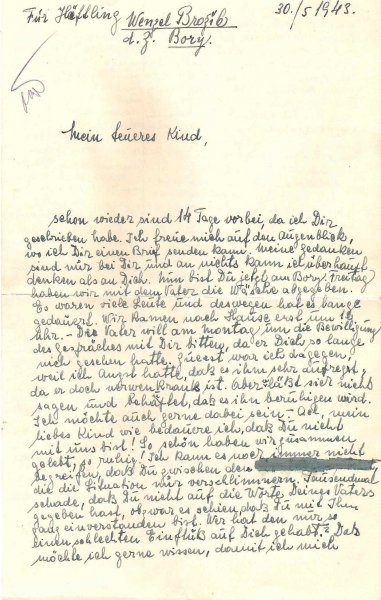 Für Häftling Wenzel Brožik 30./5 1943.
d. Z. Bory.
Mein teueres Kind,
schon wieder sind 14 Tage vorbei, da ich Dir
geschrieben habe. Ich freue mich auf den Augenblick,
wo ich Dir einen Brief senden kann. Meine Gedanken
sind nur bei Dir und an nichts kann ich überhaupt
denken als an Dich. Nun bist Du jetzt am Bory. Freitag
haben wir mit dem Vater die Wäsche abgegeben.
Es waren viele Leute und deswegen hat es lange
gedauert. Wir kamen nach Hause erst um
Uhr. – Der Vater will am Montag um die Bewilligung
des Gespräches mit Dir bitten, da er Dich so lange
nich gesehen hatte. Zuerst war ich dagegen,
weil ich Angst hatte, dass es ihn sehr aufregt,
da er doch nervenkrank ist. Aber läßt sich nicht
sagen und behauptet, das es ihn beruhigen wird.
Ich möchte auch gerne dabei sein. – Ach, mein
liebes Kind wie bedauere ich, daß Du nicht
mit uns bist! So schön haben wir zusammen
gelebt, so ruhig! Ich kann es noch immer nicht
begreifen, daß Du zwischen den
die die Situation nur verschlimmern. Tausendmal
schade, daß Du nicht auf die Worte Deines Vaters
gegeben hast, obzwar es schien, daß Du mit Ihm
ganz einverstanden bist. Wer hat den nur so
einen schlechten Einfluß auf Dich gehabt? Das
möchte ich gerne wissen, damit ich mich